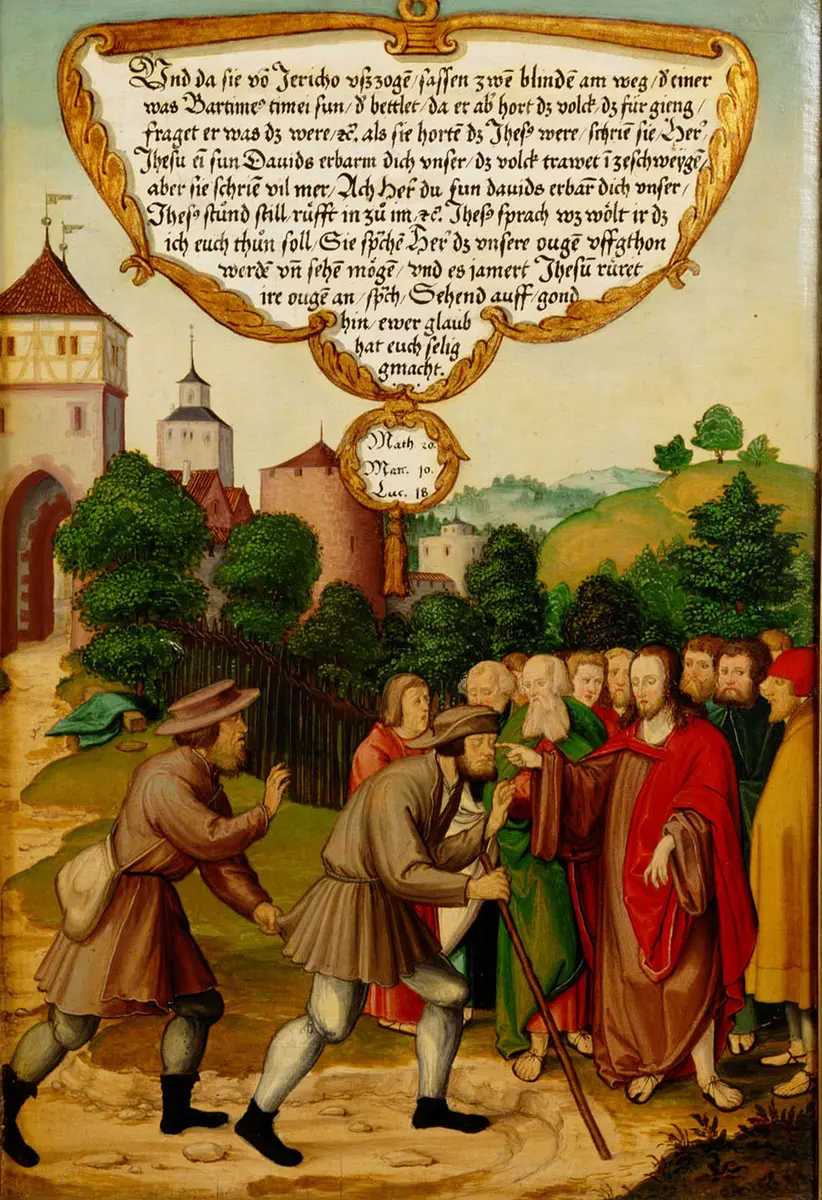 Vnd da sie vō Jericho vſzzogē / ſaſſen zwē blindē am weg / d̕ einer
was Bartimeꝰ timei ſun / d̕ bettlet / da er ab̕ hort dz volck dz für gieng /
fraget er was dz were / ꝛc. als ſie hortē dz Jheſꝰ were / ſchriē ſie / Her̕
Jheſu ei̅ ſun Davids erbarm dich vnſer / dz volck trawet i̅ zeſchweygē /
aber ſie ſchriē vil mer / Ach Her̕ du ſun davids erbar̅ dich vnſer /
Jheſꝰ ſtūnd ſtill / růfft in zů im / ꝛc. Jheſꝰ ſprach wz wölt ir dz
ich euch thůn ſoll / Sie ſp̕chē Her̕ dz vnſere ougē vffgthon
werdē vn̄ ſehē mögē / vnd es jamert Jheſum̅ růret
ire ougē an / ſp̕ch / Sehend auff / gond
hin / ewer glaub
hat euch ſelig
gmacht.
Math. 20.
Marc. 10.
Luc. 18